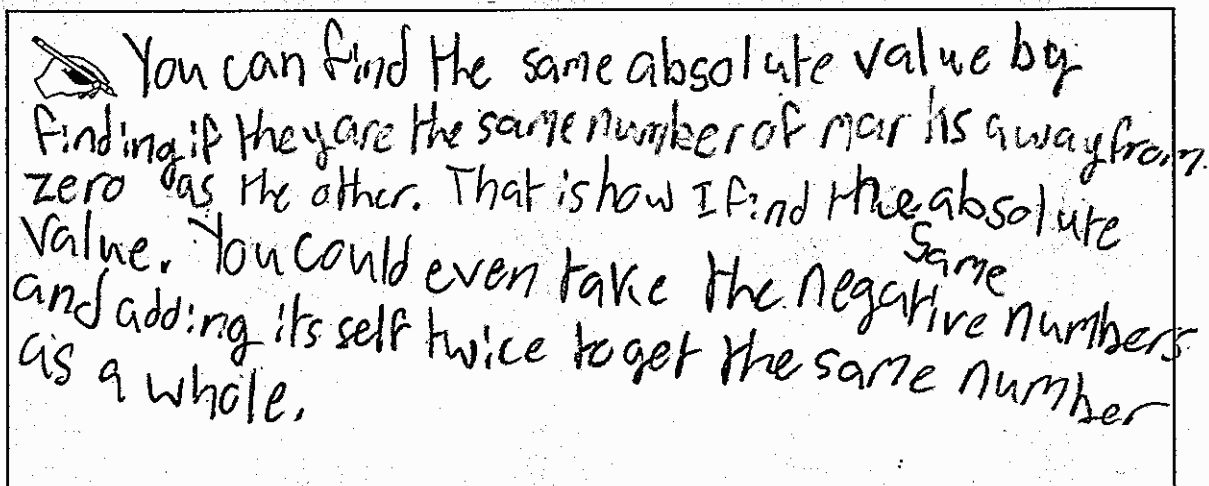 You can find the same absolute value by
finding if they are the same number of marks away from
zero as the other. That is how I find the absolute
same
value. You could even take the negative numbers
and adding its self twice to get the same number
as a whole.